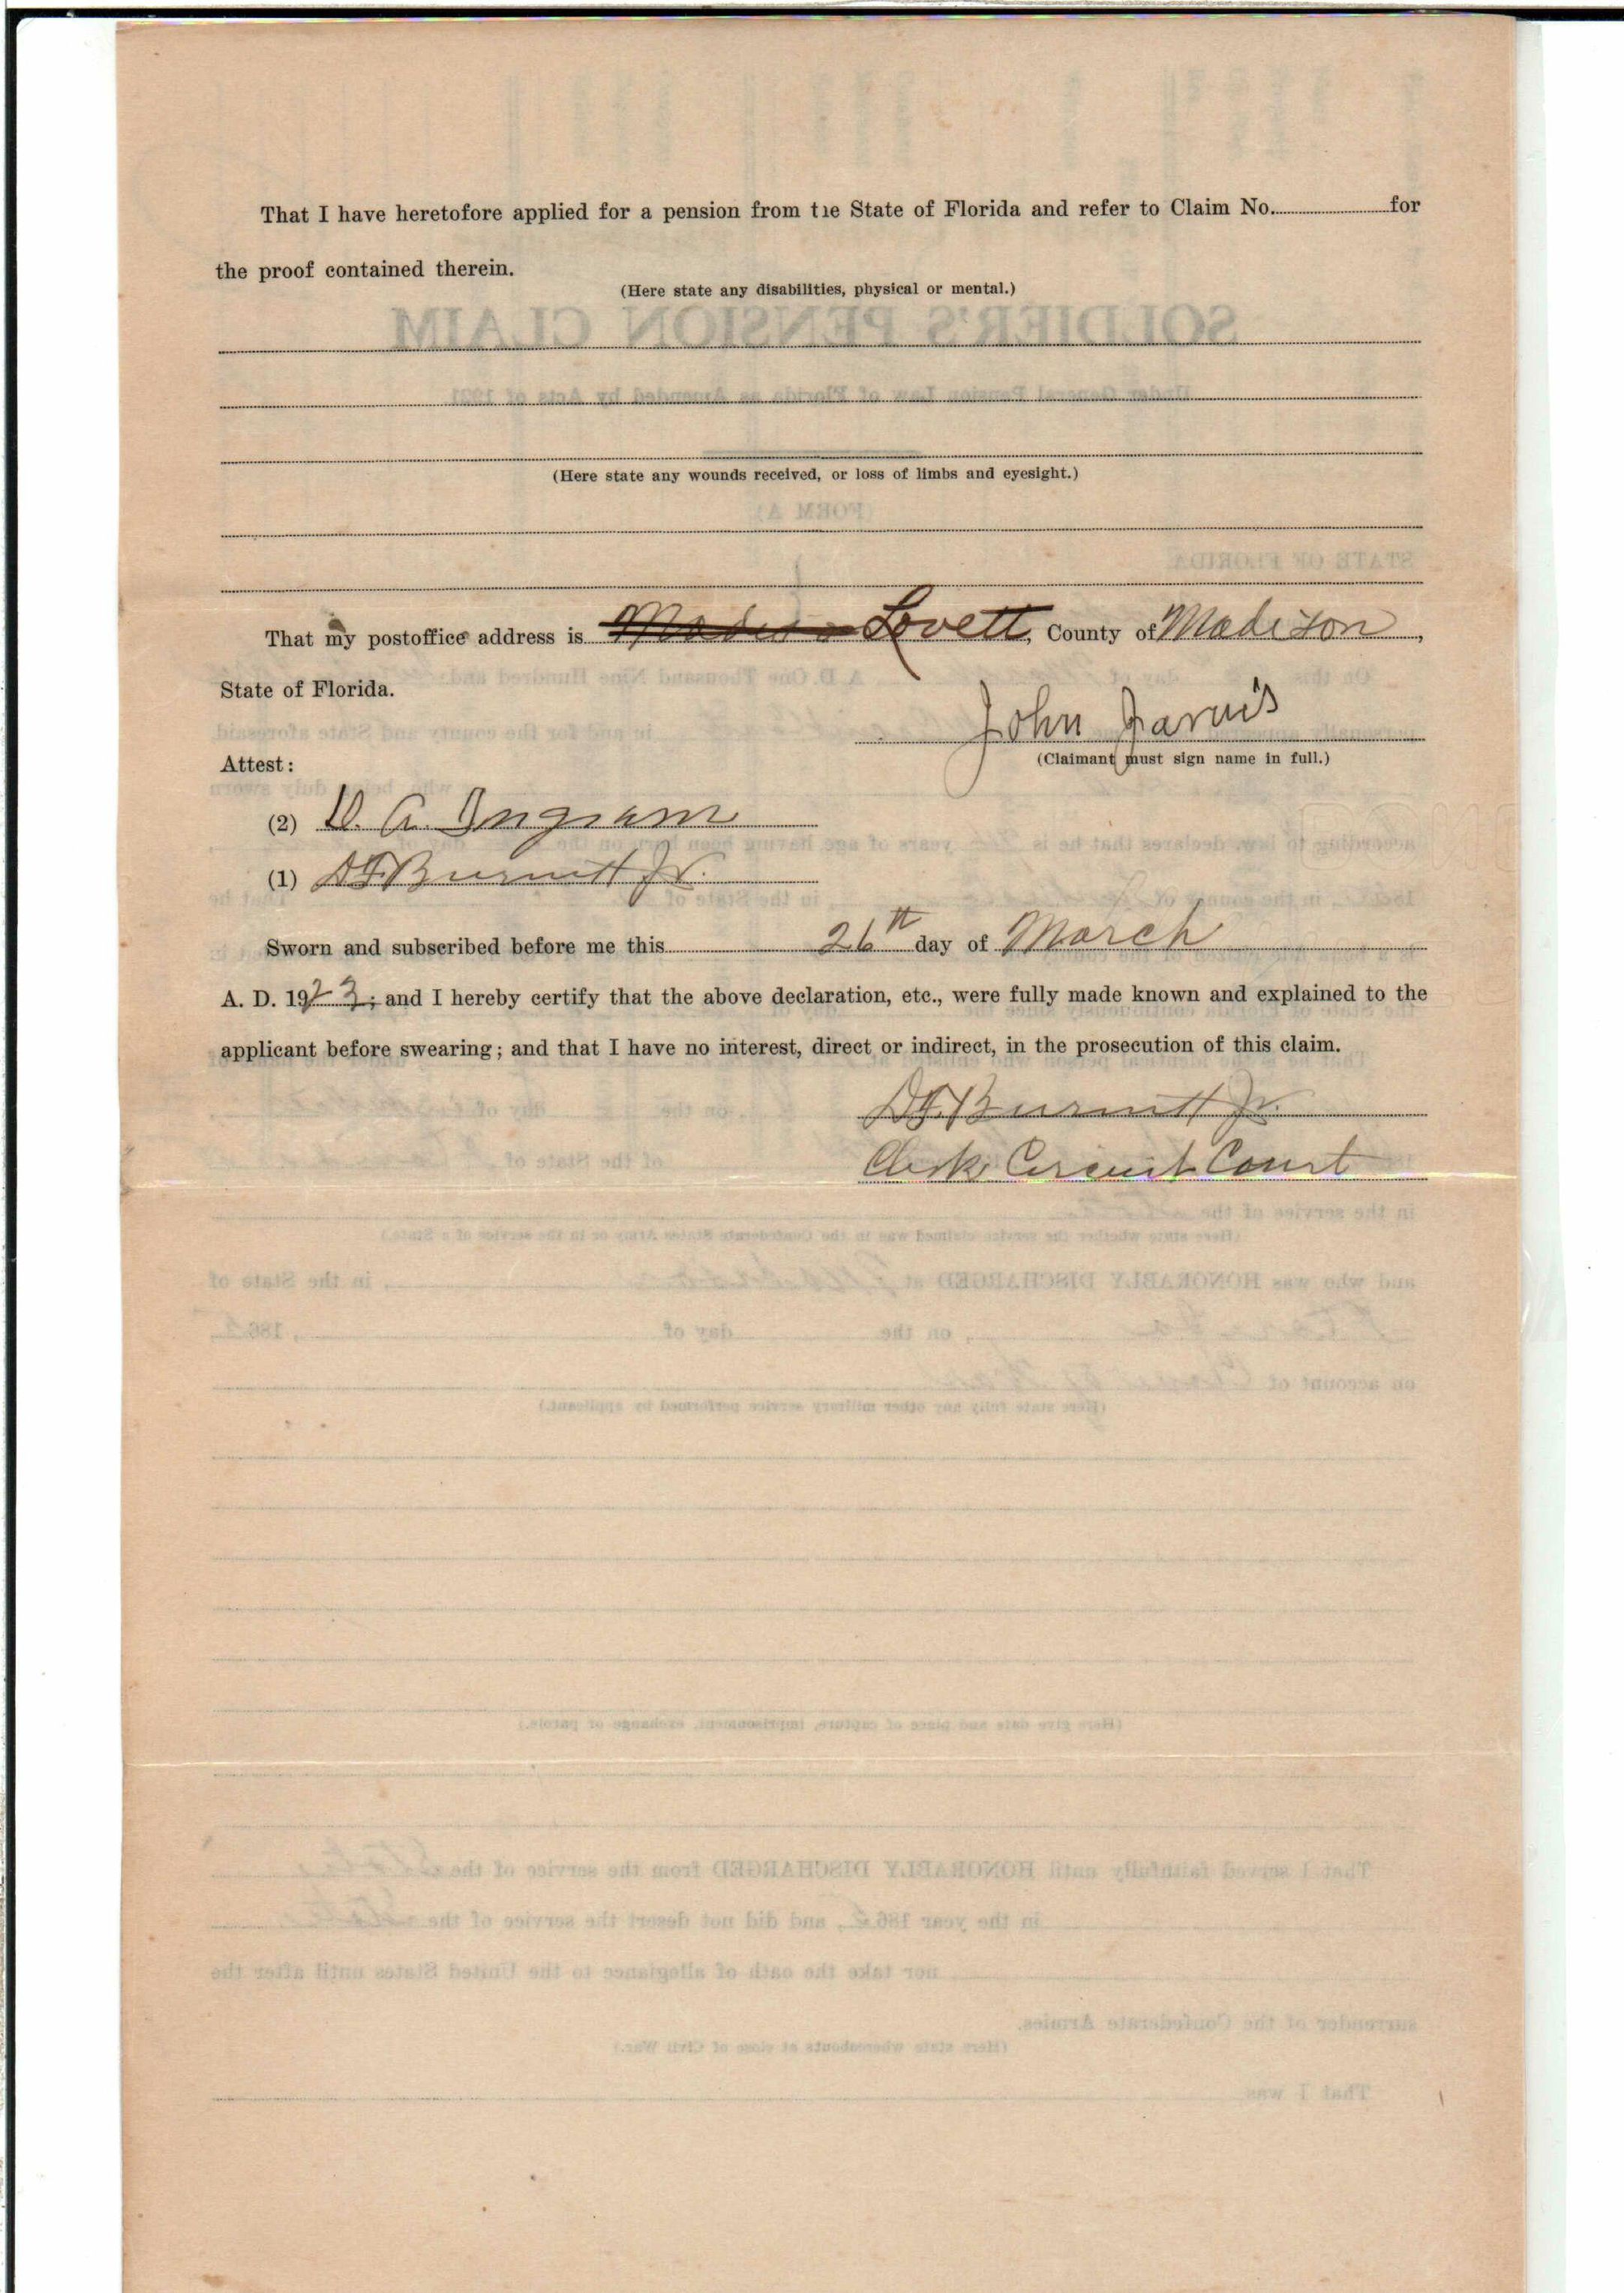 That I have heretofore applied for a pension from tie State of Florida and refer to Claim No.........for
the proof contained therein.
(Here state any disabilities, physical or mental.)
(Here state any wounds received, or loss of limbs and eyesight.)
That my postoffice address is Lovett, County of Madison,
State of Florida.
John Jarvis
(Claimant must sign name in full.)
Attest:
(2) D. A. Ingram
(1) D F Burnett Jr.
Sworn and subscribed before me this 26th day of March
A. D. 1923; and I hereby certify that the above declaration, etc., were fully made known and explained to the
applicant before swearing; and that I have no interest, direct or indirect, in the prosecution of this claim.
D F Burnett Jr.
Clerk Circuit Court